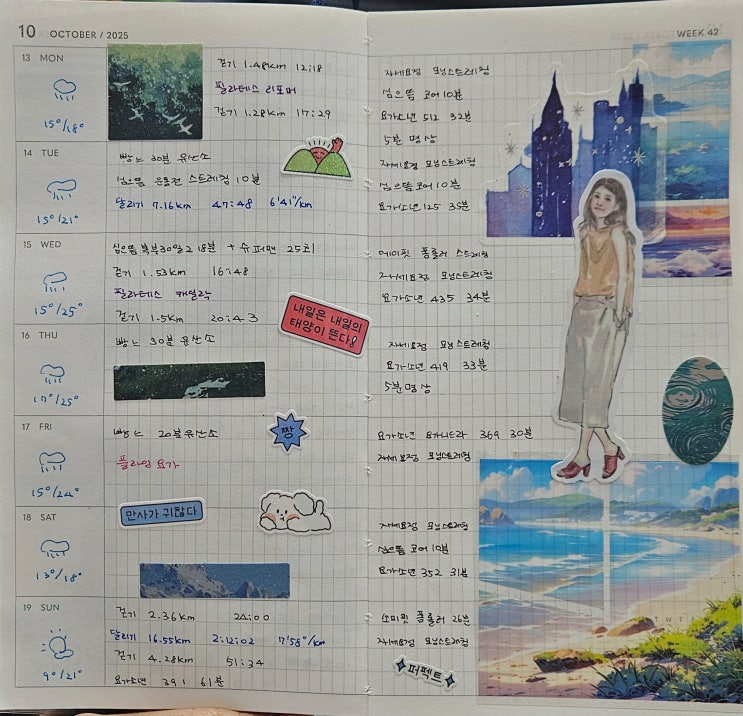 10 OCTOBER / 2025
13 MON
15°/18°
걷기 1.48km 12:18
필라테스 리포머
걷기 1.28km 17:29
14 TUE
15°/21°
빵느 30분 유산소
심으뜸 운동전 스트레칭 10분
달리기 7.16km 47:48 6'41"/km
15 WED
15°/25°
심으뜸 복부30일2 18분 + 슈퍼맨 25회
걷기 1.53km 16:48
필라테스 캐딜락
걷기 1.5km 20:43
내일은 내일의
태양이 뜬다!
16 THU
17°/25°
빵느 30분 유산소
17 FRI
15°/24°
빵느 20분 유산소
플라잉 요가
짱
18 SAT
13°/18°
만사가 귀찮다
19 SUN
9°/21°
걷기 2.36km 24:00
달리기 16.55km 2:12:02 7'58"/km
걷기 4.28km 51:34
요가소년 391 61분
WEEK 42
자세요정 모닝스트레칭
심으뜸 코어10분
요가소년 512 32분
5분 명상
자세요정 모닝스트레칭
심으뜸 코어10분
요가소년 125 35분
에이핏 폼롤러 스트레칭
자세요정 모닝스트레칭
요가소년 435 34분
자세요정 모닝스트레칭
요가소년 419 33분
5분 명상
요가소년 요가니드라 369 30분
자세요정 모닝스트레칭
자세요정 모닝스트레칭
심으뜸 코어 10분
요가소년 352 31분
소미핏 폼롤러 26분
자세요정 모닝스트레칭
퍼펙트